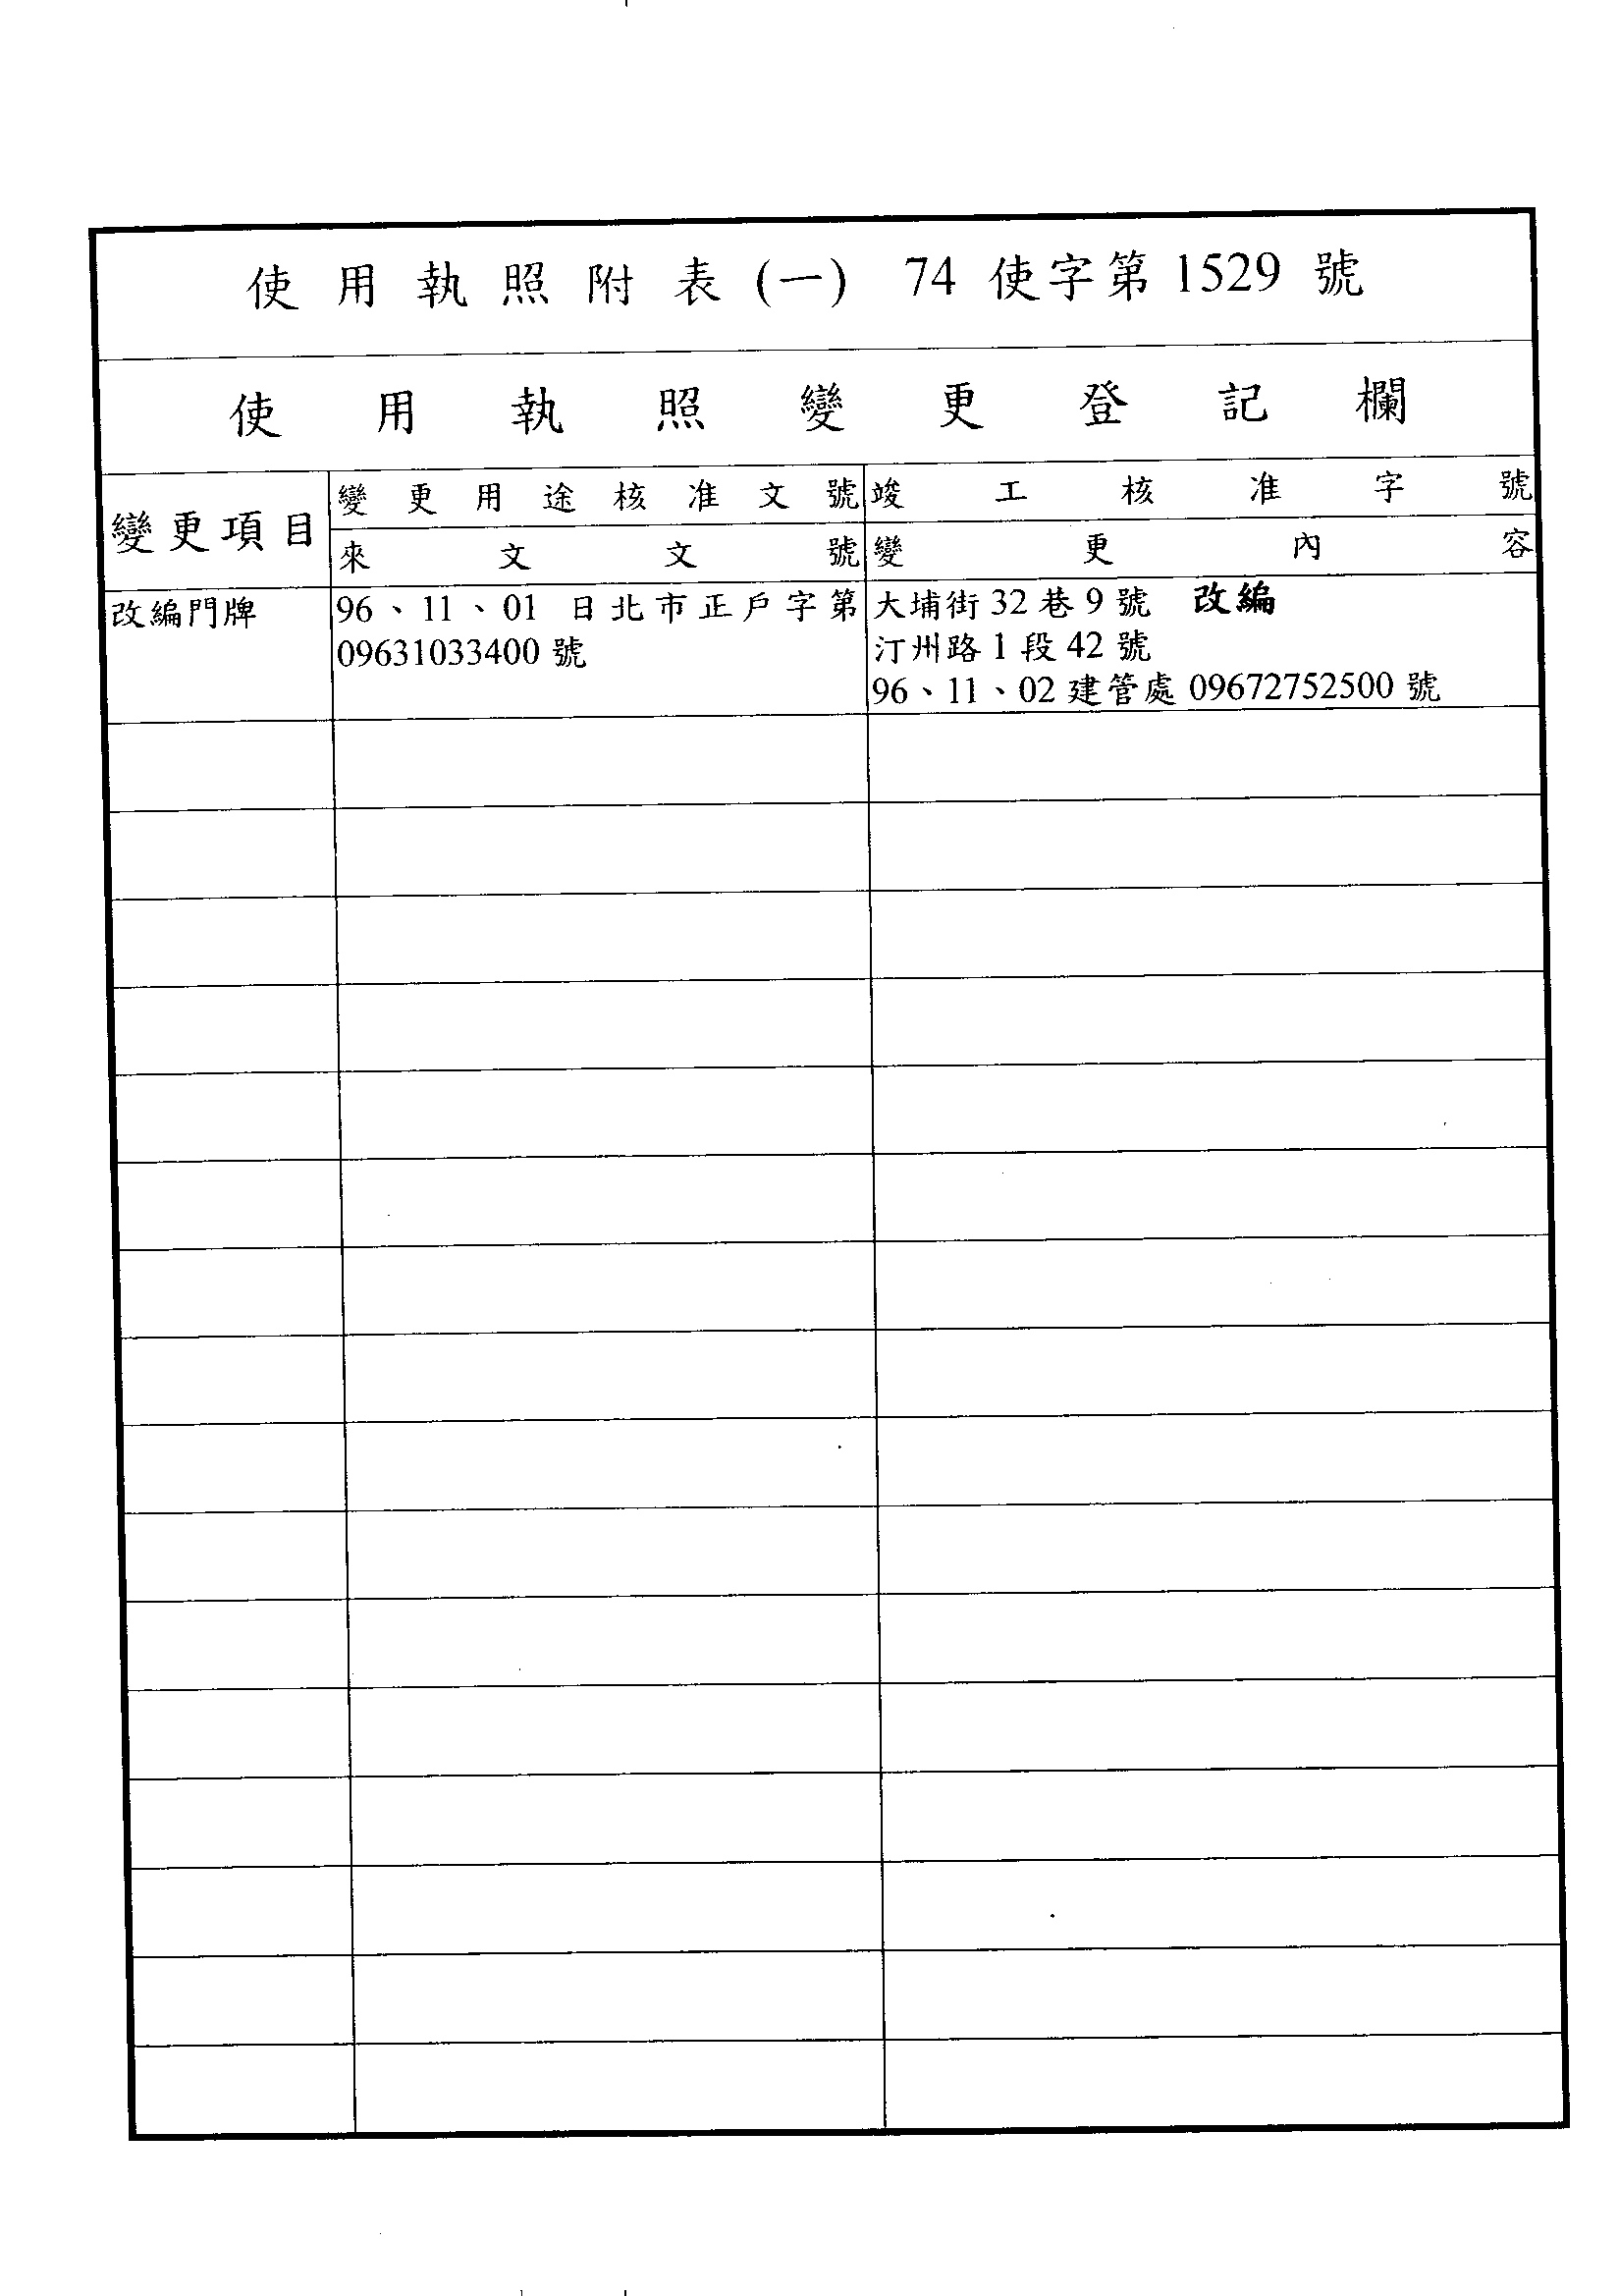 使用執照附表(一) 74使字第1529號
使用執照變更登記欄
變更項目
變更用途核准文號
竣工核准字號
來文文號
變更內容
改編門牌
96、11、01 日北市正戶字第
09631033400號
大埔街32巷9號 改編
汀州路1段42號
96、11、02建管處09672752500號